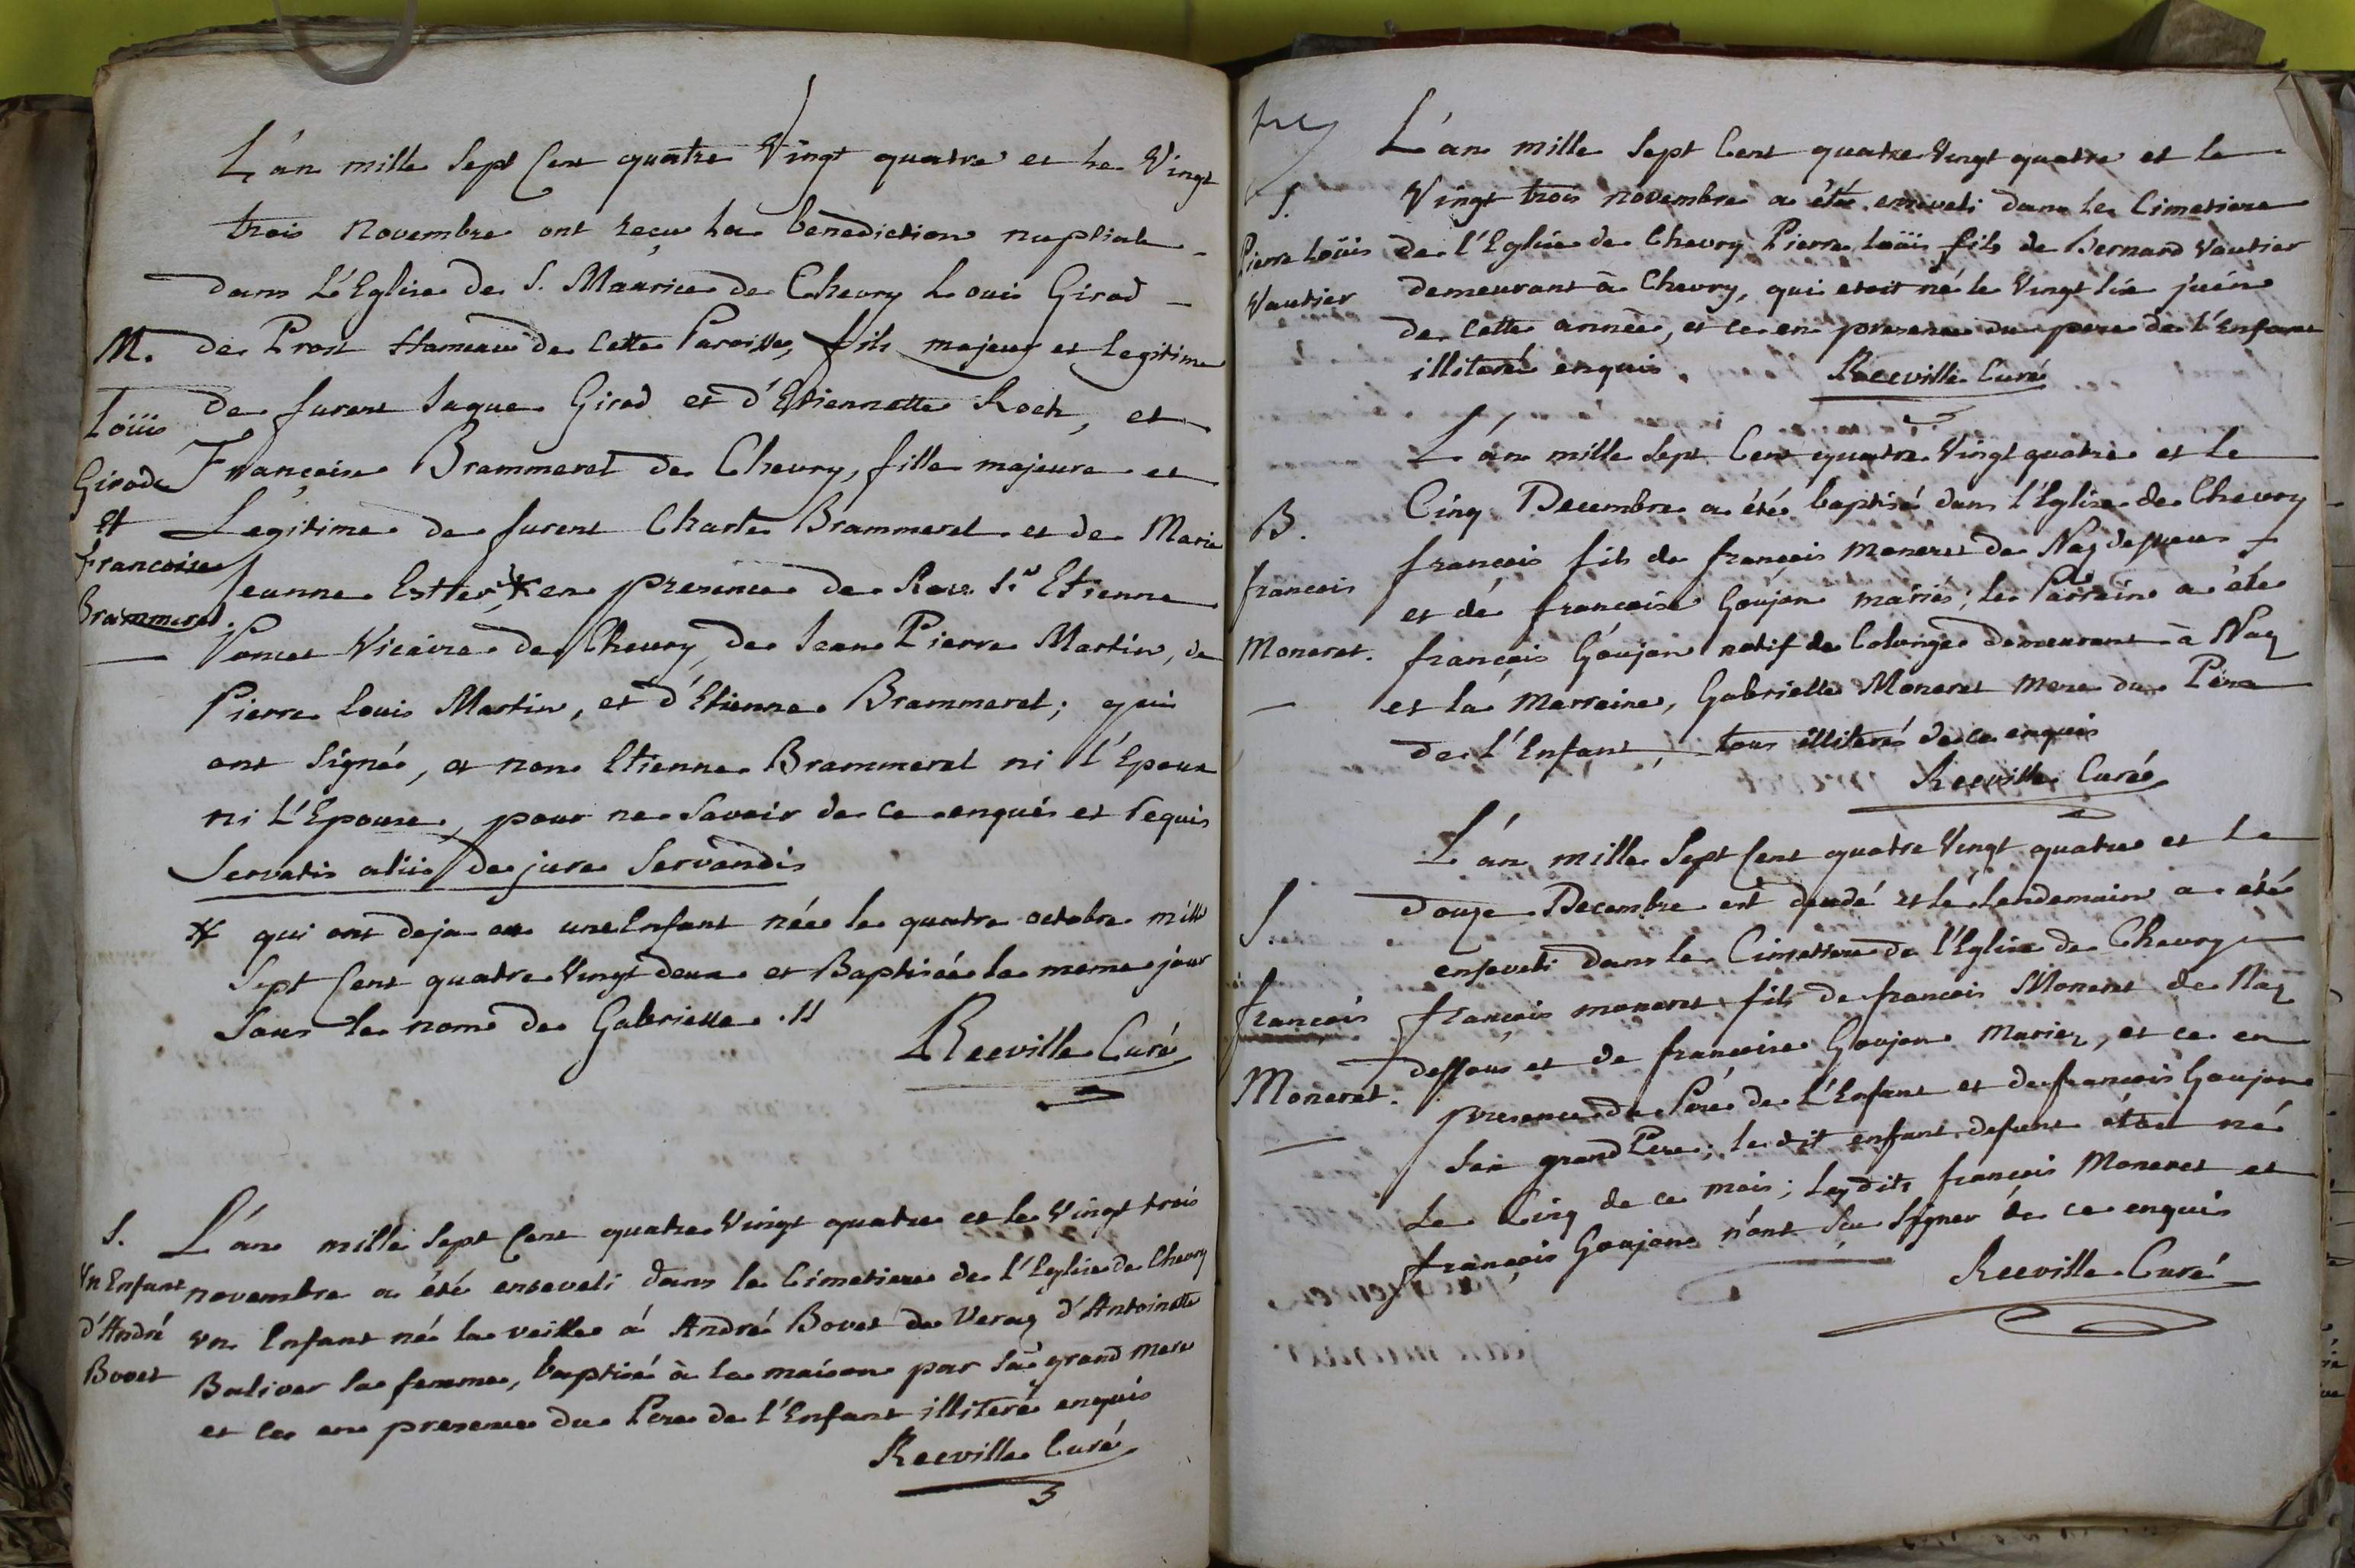 L'an mille Sept Cent quatre Vingt quatre et le Vingt
trois Novembre ont reçu la benediction nuptiale
dans L'Eglise de S. Maurice de Chevry Louis Girod
M. de Prost Hameau de Cette Paroisse, fils majeur et Legitime
Loüis de furent Jaque Girod et d'Etiennette Roch, et
Girod Françoise Brammerel de Chevry, fille majeure et
et Legitime de furent Charle Brammerel et de Marie
francoise Jeanne Estier * en presence de Rev. S.r Etienne
Brammerel. Poncet Vicaire de Chevry, de Jean Pierre Martin, de
Pierre Louis Martin, et d'Etienne Brammerel; qui
ont Signé, et non Etienne Brammerel ni l'Epoux
ni L'Epouse, pour ne Savoir de ce enquis et requis
Servatis aliis de jure Servandis
* qui ont deja eu une Enfant née le quatre octobre mille
Sept Cent quatre Vingt deux et Baptisée le meme jour
Sous le nom de Gabrielle. //
Reeville Curé
S. L'an mille Sept Cent quatre Vingt quatre et le Vingt trois
Un Enfant novembre a été enseveli dans le Cimetiere de l'Eglise de Chevry
d'André un Enfant né la veille á André Bovet de Veraz d'Antoinette
Bovet Baliver sa femme, baptisé à la maison par sa grand mere
et ce en presence du Pere de l'Enfant illiteré enquis
Reeville Curé
L'an mille Sept Cent quatre Vingt quatre et le
S. Vingt trois novembre a été enseveli dans le Cimetiere
Pierre Loüis de l'Eglise de Chevry Pierre Loüis fils de Bernard Vautier
Vautier demeurant à Chevry, qui etoit né le Vingt Six juin
de Cette année, et ce en presence du pere de l'Enfant
illiteré enquis. Reeville Curé
L'an mille Sept Cent quatre Vingt quatre et le
B. Cinq Decembre a été baptisé dans l'Eglise de Chevry
francois françois fils de françois Moneret de Naz dessous
et de françoise Goujon mariés; le Parrain a été
Moneret. françois Goujon natif de Colonges demeurant à Naz
et la Marraine, Gabrielle Moneret mere du Pere
de L'Enfant, tous illiterés de ce enquis
Reeville Curé
L'an mille Sept Cent quatre Vingt quatre et le
S. douze Decembre est decedé et le lendemain a été
enseveli dans le Cimetiere de l'Eglise de Chevry
francois françois moneret fils de francois Moneret de Naz
dessous et de francoise Goujon Mariez, et ce en
Moneret. presence du Pere de L'Enfant et de francois Goujon
Son grand Pere; le dit enfant defunt étoit né
Le Cinq de ce mois; Lesdits françois Moneret et
françois Goujon n'ont Su Signer de ce enquis
Reeville Curé